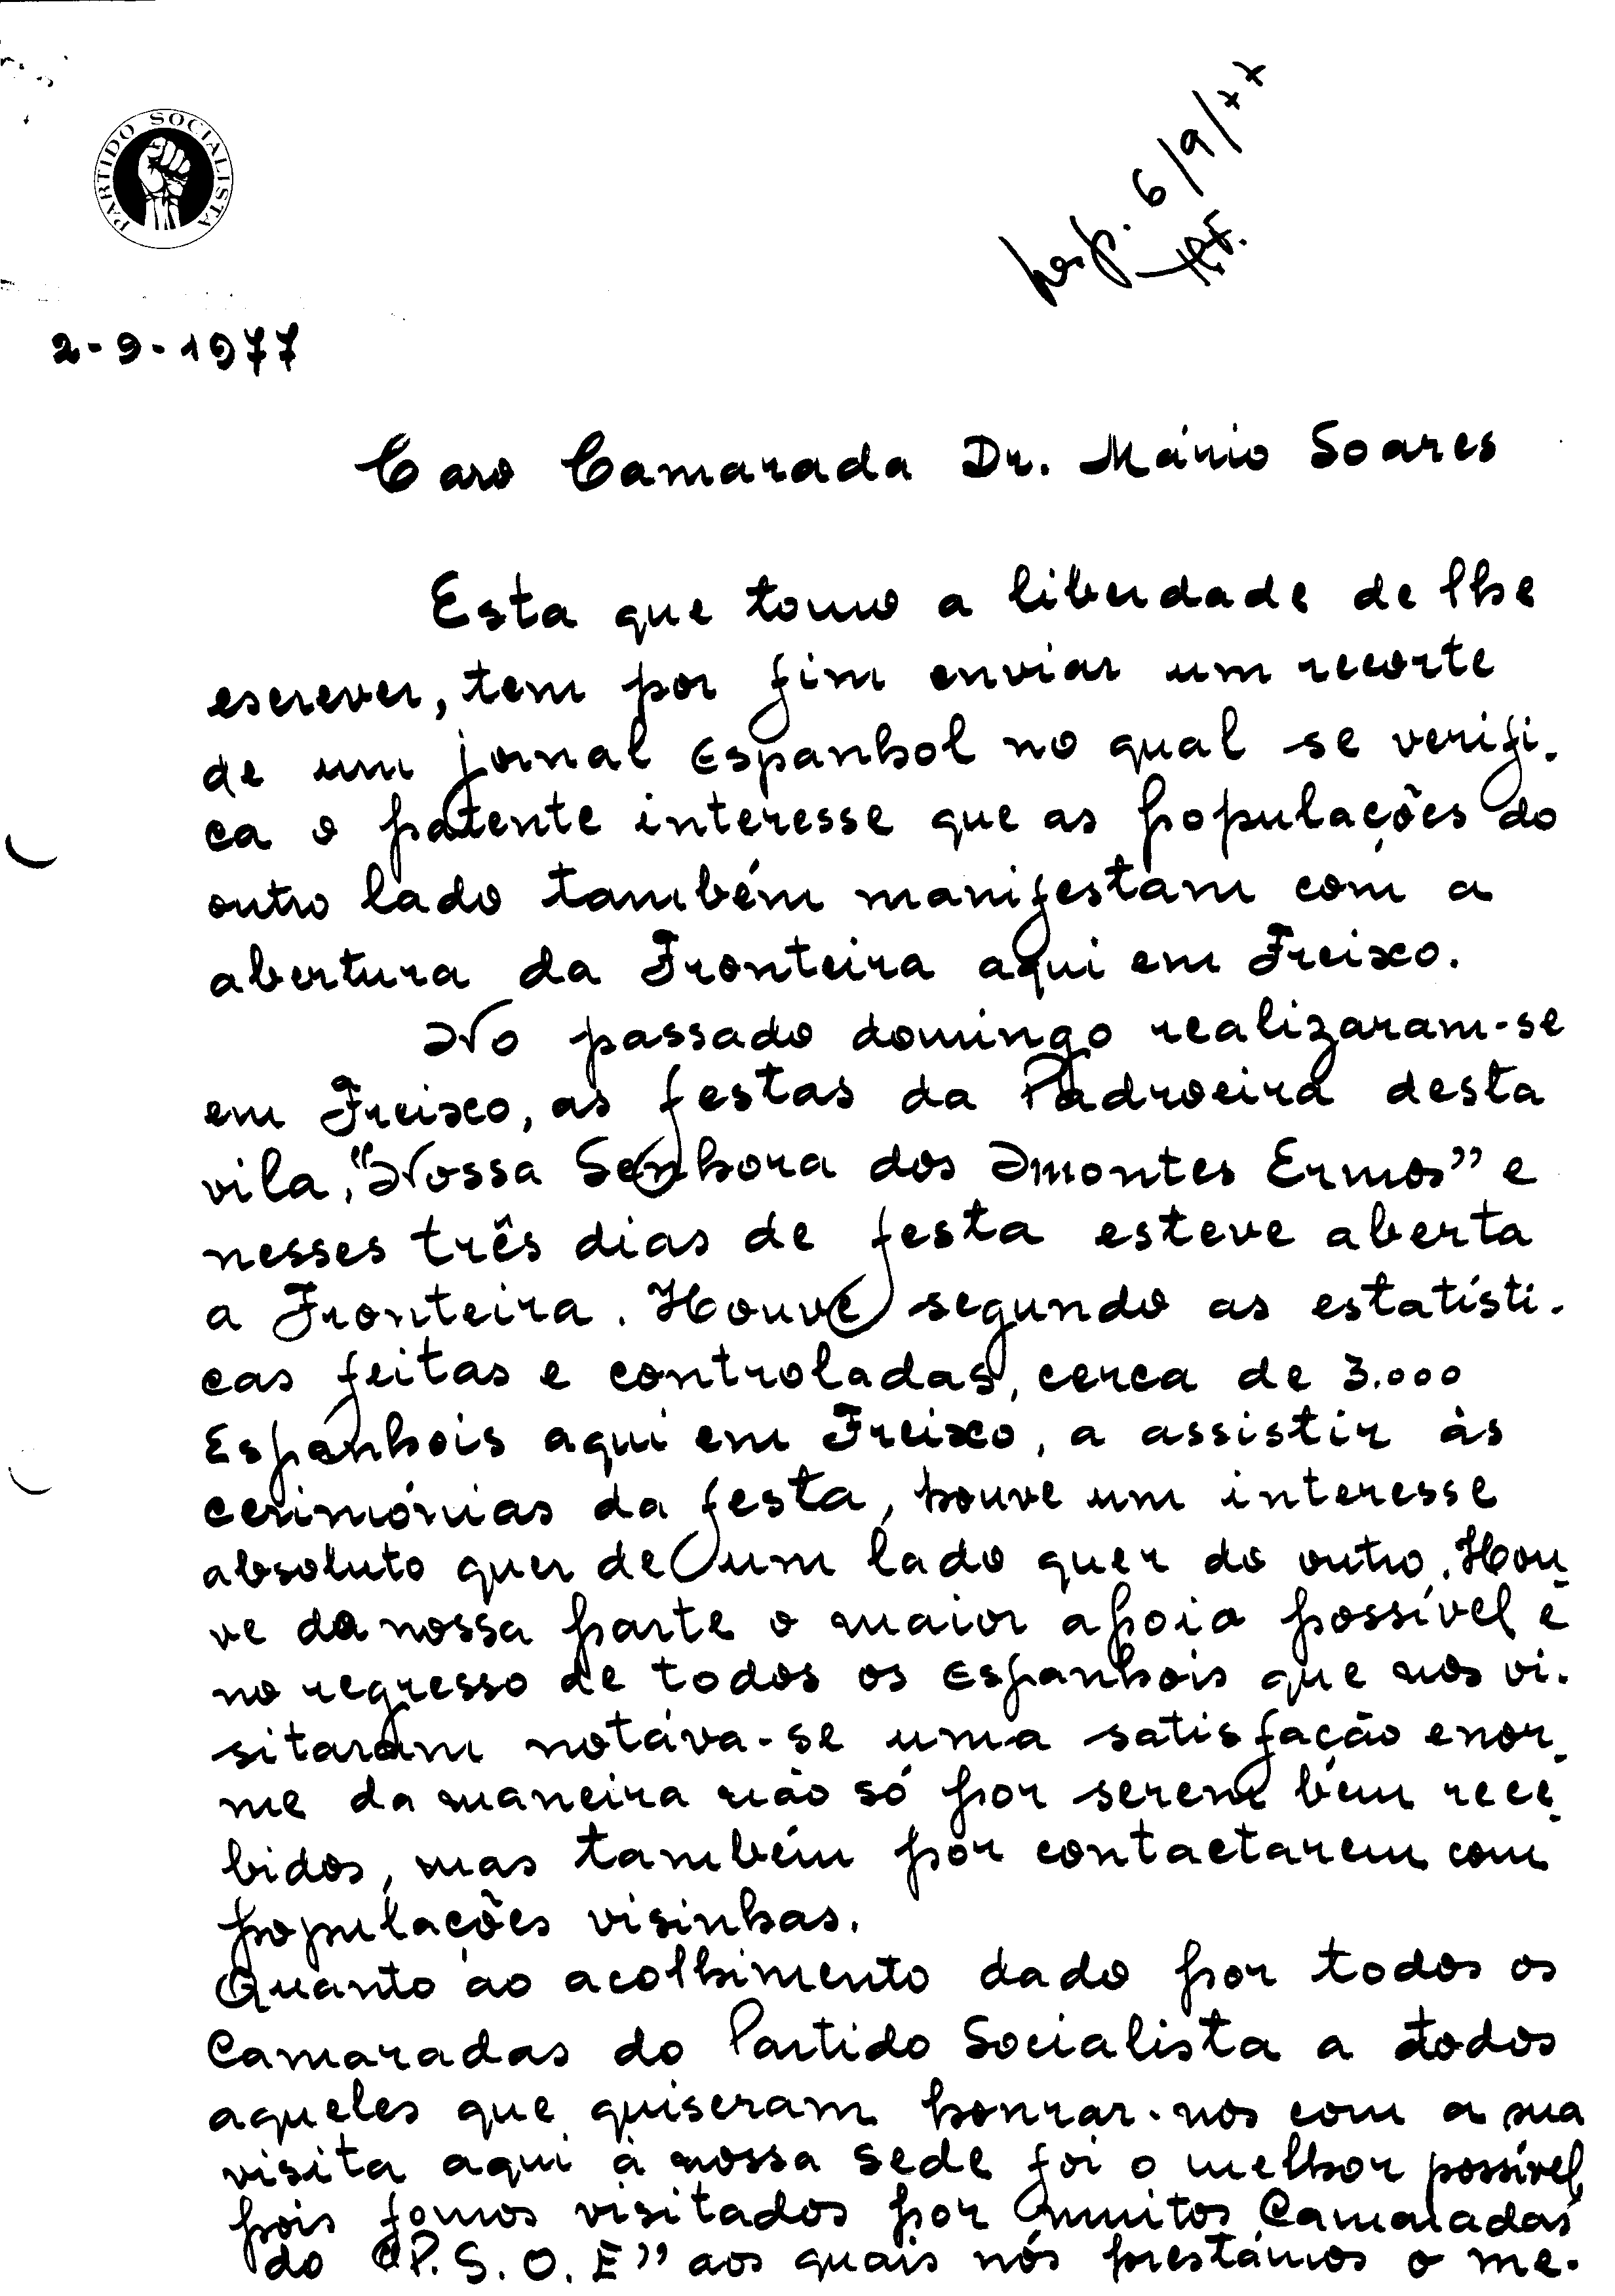 PARTIDO SOCIALISTA
resp. 6/9/77
2-9-1977
Caro Camarada Dr. Mário Soares
Esta que tomo a liberdade de lhe
escrever, tem por fim enviar um recorte
de um jornal Espanhol no qual se verifi-
ca o patente interesse que as populações do
outro lado também manifestam com a
abertura da Fronteira aqui em Freixo.
No passado domingo realizaram-se
em Freixo, as festas da Padroeira desta
vila, "Nossa Senhora dos Montes Ermos" e
nesses três dias de festa esteve aberta
a Fronteira. Houve segundo as estatísti-
cas feitas e controladas, cerca de 3.000
Espanhois aqui em Freixo, a assistir às
cerimónias da festa, houve um interesse
absoluto quer de um lado quer do outro. Hou-
ve da nossa parte o maior apoio possível e
no regresso de todos os Espanhois que nos vi-
sitaram notáva-se uma satisfação enor-
me da maneira não só por serem bem rece-
bidos, mas também por contactarem com
populações visinhas.
Quanto ao acolhimento dado por todos os
Camaradas do Partido Socialista a todos
aqueles que quiseram honrar-nos com a sua
visita aqui à nossa sede foi o melhor possível,
pois fomos visitados por muitos Camaradas
do "P.S.O.E" aos quais nós prestámos o me-